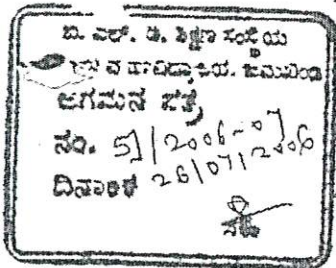 ಬಿ. ಎಲ್. ಡಿ. ಶಿಕ್ಷಣ ಸಂಸ್ಥೆಯ
ಮಹಾವಿದ್ಯಾಲಯ. ಜಮಖಂಡಿ
ಆಗಮನ ಪತ್ರ
ನಂ. 51/2006-07
ದಿನಾಂಕ 26/07/2006
ಸಹಿ